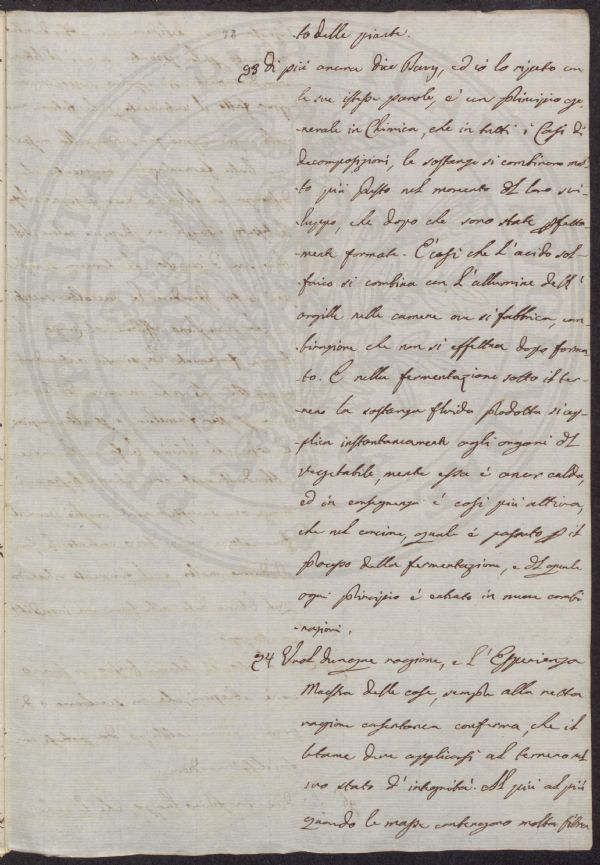 to delle piante.
93 Di più ancora dice Davy, ed io lo riputo con
le sue istesse parole, è un principio ge-
nerale in Chimica, che in tutti i Casi di
decomposizioni, le sostanze si combinano mol-
to più presto nel momento del loro svi-
luppo, che dopo che sono state perfetta-
mente formate. E' così che l'acido sol-
forico si combina con l'allumine dell'
argille nelle camere ove si fabbrica, com-
binazione che non si effettua dopo forma-
to. E nella fermentazione sotto il ter-
reno la sostanza fluida prodotta si ap-
plica instantaneamente agli organi del
vegetabile, mentre essa è ancor calda,
ed in conseguenza è così più attiva,
che nel concime, quale è passato per il
processo della fermentazione, e del quale
ogni principio è entrato in nuove combi-
nazioni.
94 Vuol dunque ragione, e l'Esperienza
Maestra delle cose, sempre alla retta
ragione conferma, che il
letame deve applicarsi al terreno nel
suo stato d'integrità. Al più al più
quando le masse contengono molta fibra